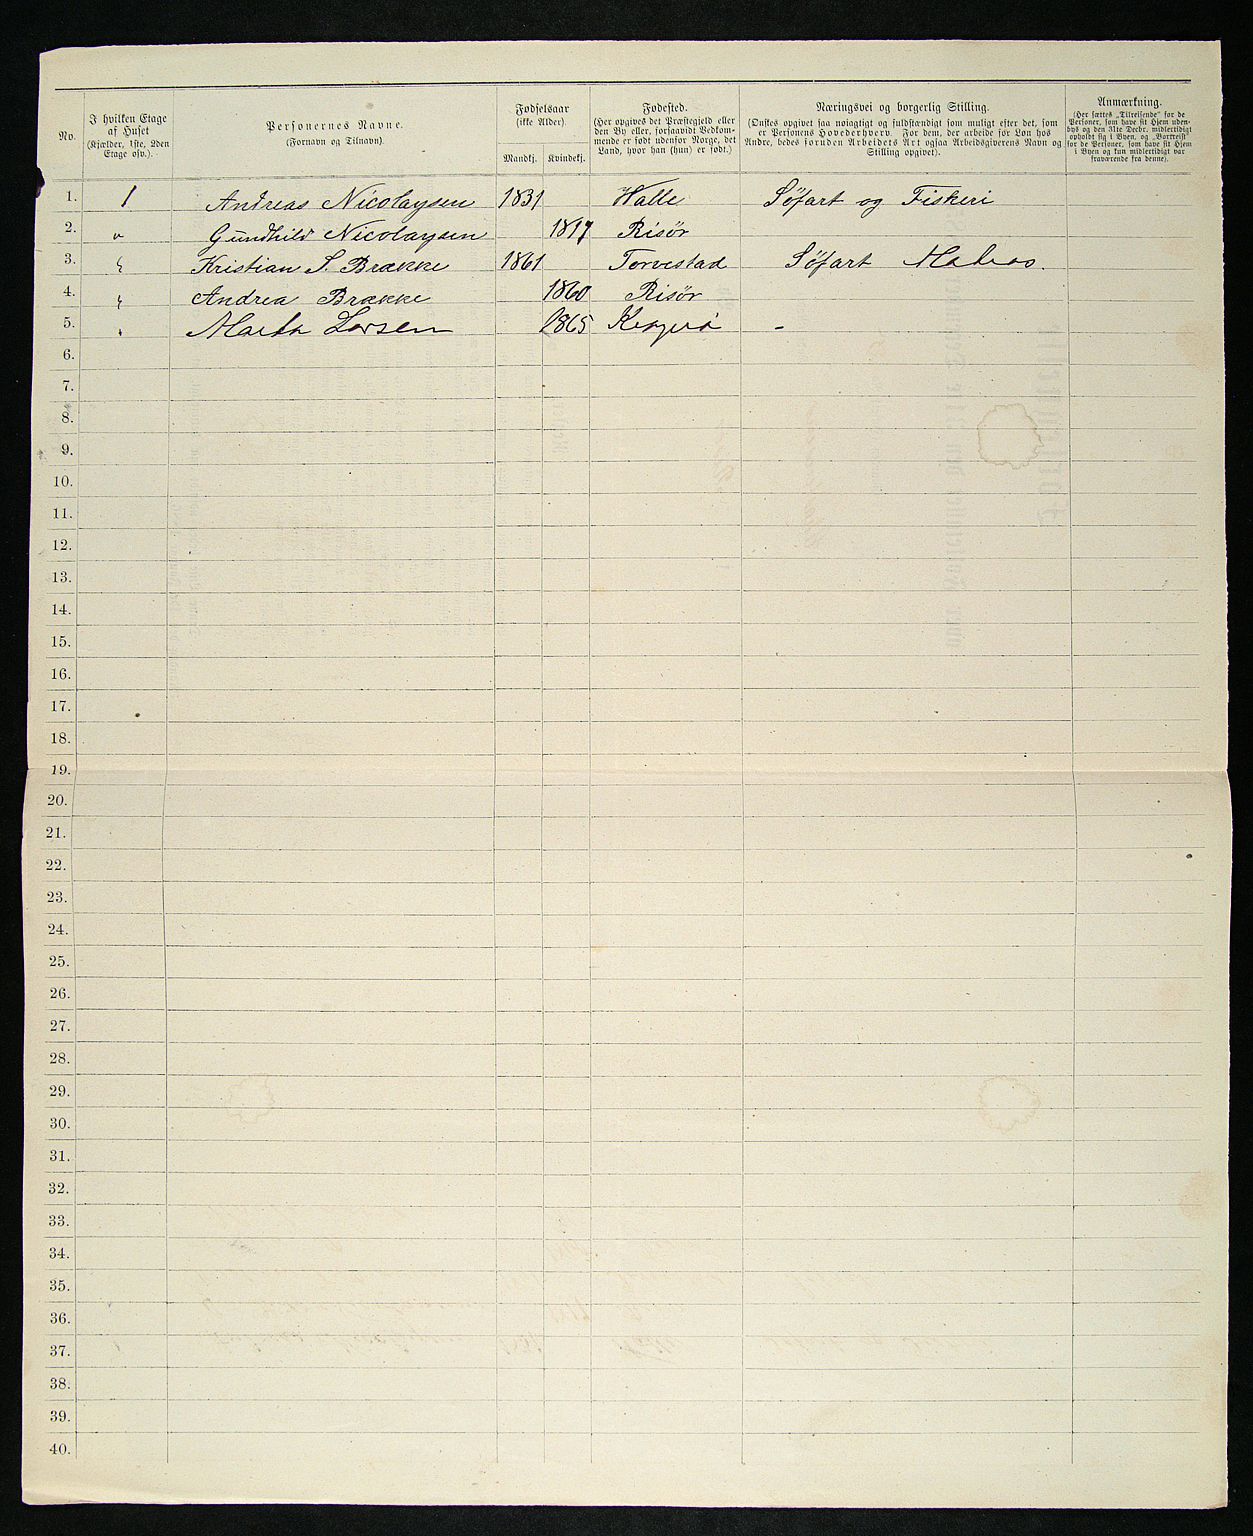 No. | I hvilken Etage af Huset (Kjælder, 1ste, 2den Etage osv.). | Personernes Navne. (Fornavn og Tilnavn). | Fødselsaar (ikke Alder). Mandkj. | Kvindekj. | Fødested. (Her opgives det Præstegjeld eller den By eller, forsaavidt Vedkommende er født udenfor Norge, det Land, hvor han (hun) er født.) | Næringsvei og borgerlig Stilling. (Ønskes opgivet saa nøiagtigt og fuldstændigt som muligt efter det, som er Personens Hovederhverv. For dem, der arbeide for Løn hos Andre, bedes foruden Arbeidets Art ogsaa Arbeidsgiverens Navn og Stilling opgivet). | Anmærkning. (Her sættes „Tilreisende“ for de Personer, som have sit Hjem udenbys og den 31te Decbr. midlertidigt opholdt sig i Byen, og „Bortreist“ for de Personer, som have sit Hjem i Byen og kun midlertidigt var fraværende fra denne).
1. 1 Andreas Nicolaysen 1831 Halle Söfart og Fiskeri
2. " Gundhild Nicolaysen 1817 Risör
3. " Kristian S. Brække 1861 Torvestad Söfart Matros.
4. " Andrea Brække 1860 Risör
5. " Larsen 1865 -
6.
7.
8.
9.
10.
11.
12.
13.
14.
15.
16.
17.
18.
19.
20.
21.
22.
23.
24.
25.
26.
27.
28.
29.
30.
31.
32.
33.
34.
35.
36.
37.
38.
39.
40.